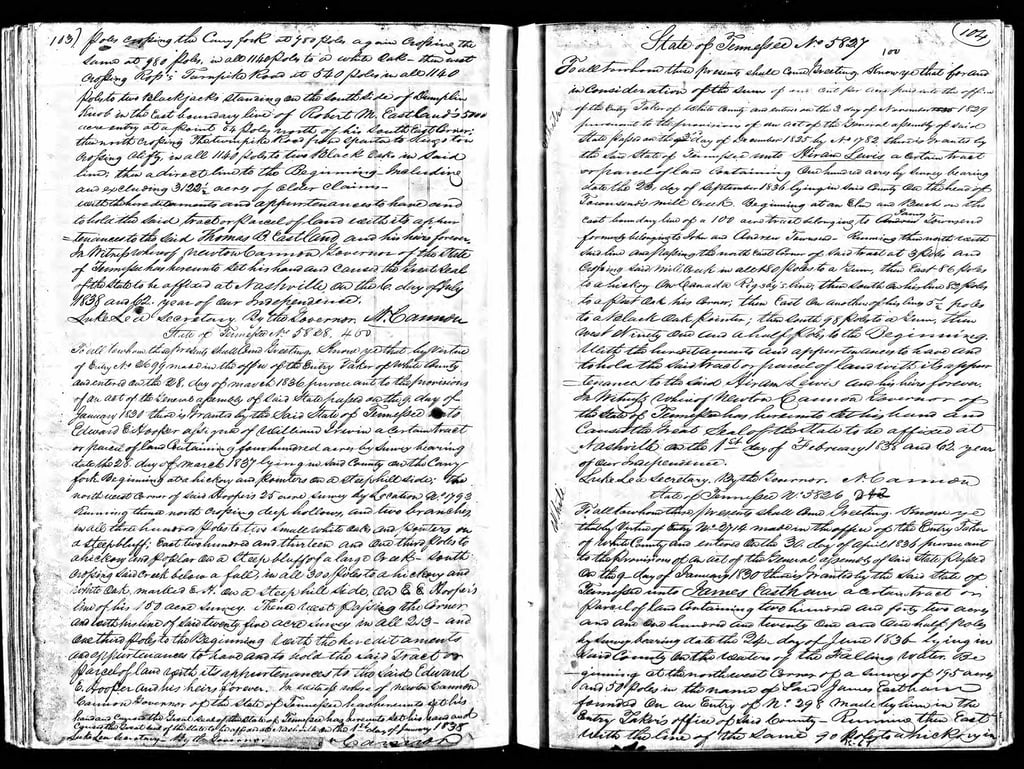 103)
Poles crossing the Caney fork at 900 poles again crossing the
same at 980 poles, in all 1140 poles to a white oak - then west
crossing Turnpike Road at 540 poles in all 1140
Poles to two blackjacks standing on the South side of Dumplin
Knob in the east boundary line of Robert M. Eastland's 5000
acre entry at a point 64 poles north of his South East Corner;
then north crossing the turnpike Road from Sparta to Kingston
crossing in all 1140 poles to two Black Oaks in said
line, then a direct line to the Beginning. Including
and excluding 3122½ acres of older claims -
with the hereditaments and appurtenances to have and
to hold the said tract or parcel of land with its appur
=tenances to the said Thomas B. Eastland and his heirs forever
In Witness whereof Newton Cannon Governor of the State
of Tennessee has hereunto set his hand and caused the Great Seal
of the State to be affixed at Nashville on the 6 day of July
1838 and 62 year of our Independence.
Luke Lea Secretary. By the Governor. N. Cannon
State of Tennessee No 5828. 400
To all to whom these presents shall Come Greeting. Know ye that by virtue
of Entry No 2699 made in the office of the Entry Taker of White County
and entered on the 28 day of march 1836 pursuant to the provisions
of an act of the General assembly of said State passed on the 9 day of
January 1830 there is Granted by the Said State of Tennessee unto
Edward E. Hooper assignee of William Irwin a Certain tract
or parcel of land Containing four hundred acres by Survey bearing
date the 28 day of march 1837 lying in said County on the Caney
fork Beginning at a hickory and pointers on a Steep hill side; the
north west Corner of Said Hooper's 25 acre Survey by Location No 1793
Running thence north crossing deep hollows, and two branches
in all three hundred Poles to two small white oaks and pointers on
a Steep bluff; East two hundred and thirteen and one third poles to
a hickory and poplar on a Steep bluff of a large Creek - South
crossing said creek below a fall, in all 300 poles to a hickory and
white oak, marked E. H. on a Steep hill side, on E. E. Hooper's
line of his 150 acre survey. Thence West passing the Corner
and with his line of said twenty five acre survey in all 213 - and
one third poles to the Beginning with the hereditaments
and appurtenances to have and to hold the said Tract or
Parcel of land with its appurtenances to the said Edward
E. Hooper and his heirs forever. In witness where of Newton Cannon
Governor of the State of Tennessee has hereunto set his
hand and Caused the Great Seal of the State of Tennessee has hereunto set his hand and
Caused the Great Seal of the State to be affixed at Nashville on the 1st day of January 1838
Luke Lea Secretary - By the Governor. N Cannon
104
State of Tennessee No 5827
100
To all to whom these presents shall Come Greeting. Know ye that for and
in Consideration of the sum of one cent per acre paid into the office
of the Entry Taker of White County and entered on the 3 day of November 1829
pursuant to the provisions of an act of the General assembly of said
State passed on the day of December 1825 by No 1782 there is Granted by
the said State of Tennessee unto Hiram Lewis a Certain tract
or parcel of land Containing One hundred acres by Survey bearing
date the 23 day of September 1836 lying in said County on the head of
Townsend's mill Creek. Beginning at an Elm and Beech on the
East boundary line of a 100 acre tract belonging to James Townsend
formerly belonging to John and Andrew Townsend - Running thence north with
said line and passing the north east Corner of said tract at 3 poles and
crossing said mill Creek in all 180 poles to a Gum, then East 86 poles
to a hickory on Canada Rigsby's line; then South on his line 82 poles
to a post oak his Corner; then East on another of his lines 5½ poles
to a Black Oak pointer; then South 98 poles to a Gum, then
West Ninety one and a half poles to the Beginning.
With the hereditaments and appurtenances to have and
to hold the said tract or parcel of land with its appur
=tenances to the said Hiram Lewis and his heirs forever
In Witness whereof Newton Cannon Governor of
the State of Tennessee has hereunto set his hand and
Caused the Great Seal of the State to be affixed at
Nashville on the 1st day of February 1838 and 62 year
of our Independence.
Luke Lea Secretary. By the Governor. N. Cannon
State of Tennessee No 5826 242
White
To all to whom these presents shall Come Greeting. Know ye
that by Virtue of Entry No 2714 made in the office of the Entry Taker
of White County and entered on the 30 day of april 1836 pursuant
to the provisions of an act of the General assembly of said State passed
on the 9 day of January 1830 there is Granted by the said State of
Tennessee unto James Eastham a certain tract or
parcel of land Containing two hundred and forty two acres
and one hundred and twenty one and one half poles
by Survey bearing date the 24 day of June 1836 lying in
said County on the waters of the Falling water. Be
=ginning at the north west Corner of a survey of 195 acres
and 50 poles in the name of said James Eastham
founded on an Entry of No 298 made by him in the
Entry Taker's office of Said County - Running then East
With the line of the Same 90 poles to a hickory in